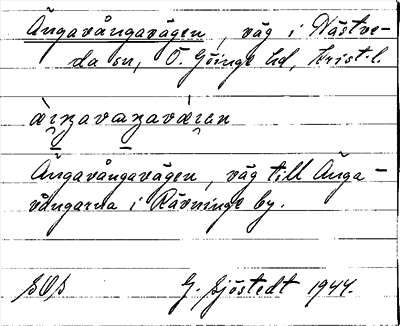 Ängavångavägen, väg i Nästve-
da sn, Ö. Göinge hd, Krist. l.
Ängavångavägen, väg till Änga-
vångarna i Rävninge by.
SOS G. Sjöstedt 1944.